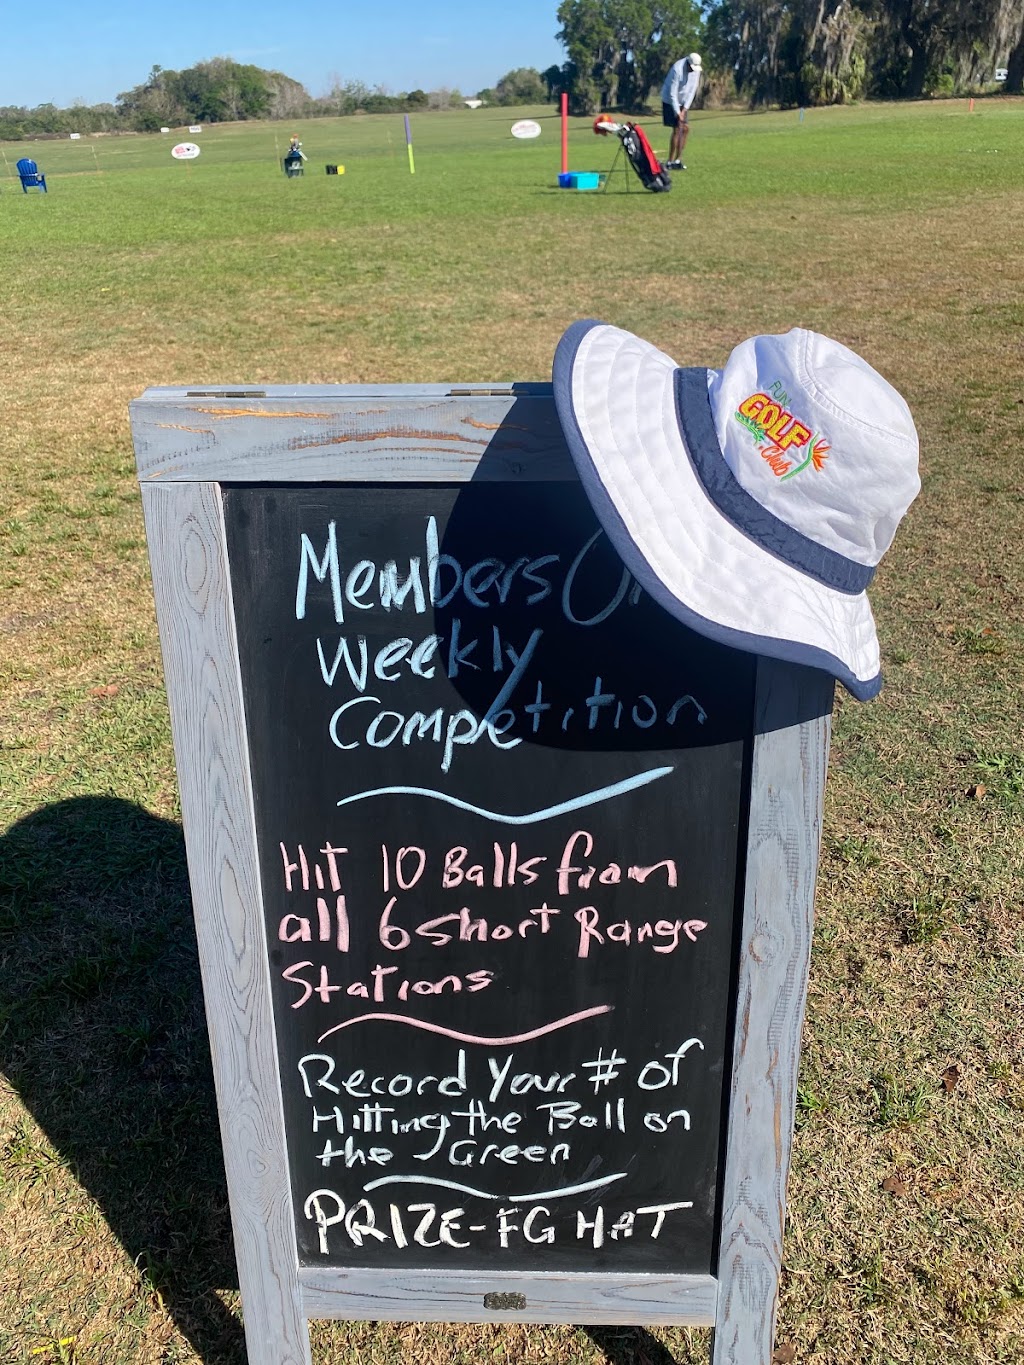 FUN
GOLF
Club
Members
Weekly
Competition
Hit 10 Balls from
all 6 short Range
Stations
Record Your # of
Hitting the Ball on
the Green
PRIZE-FG HAT